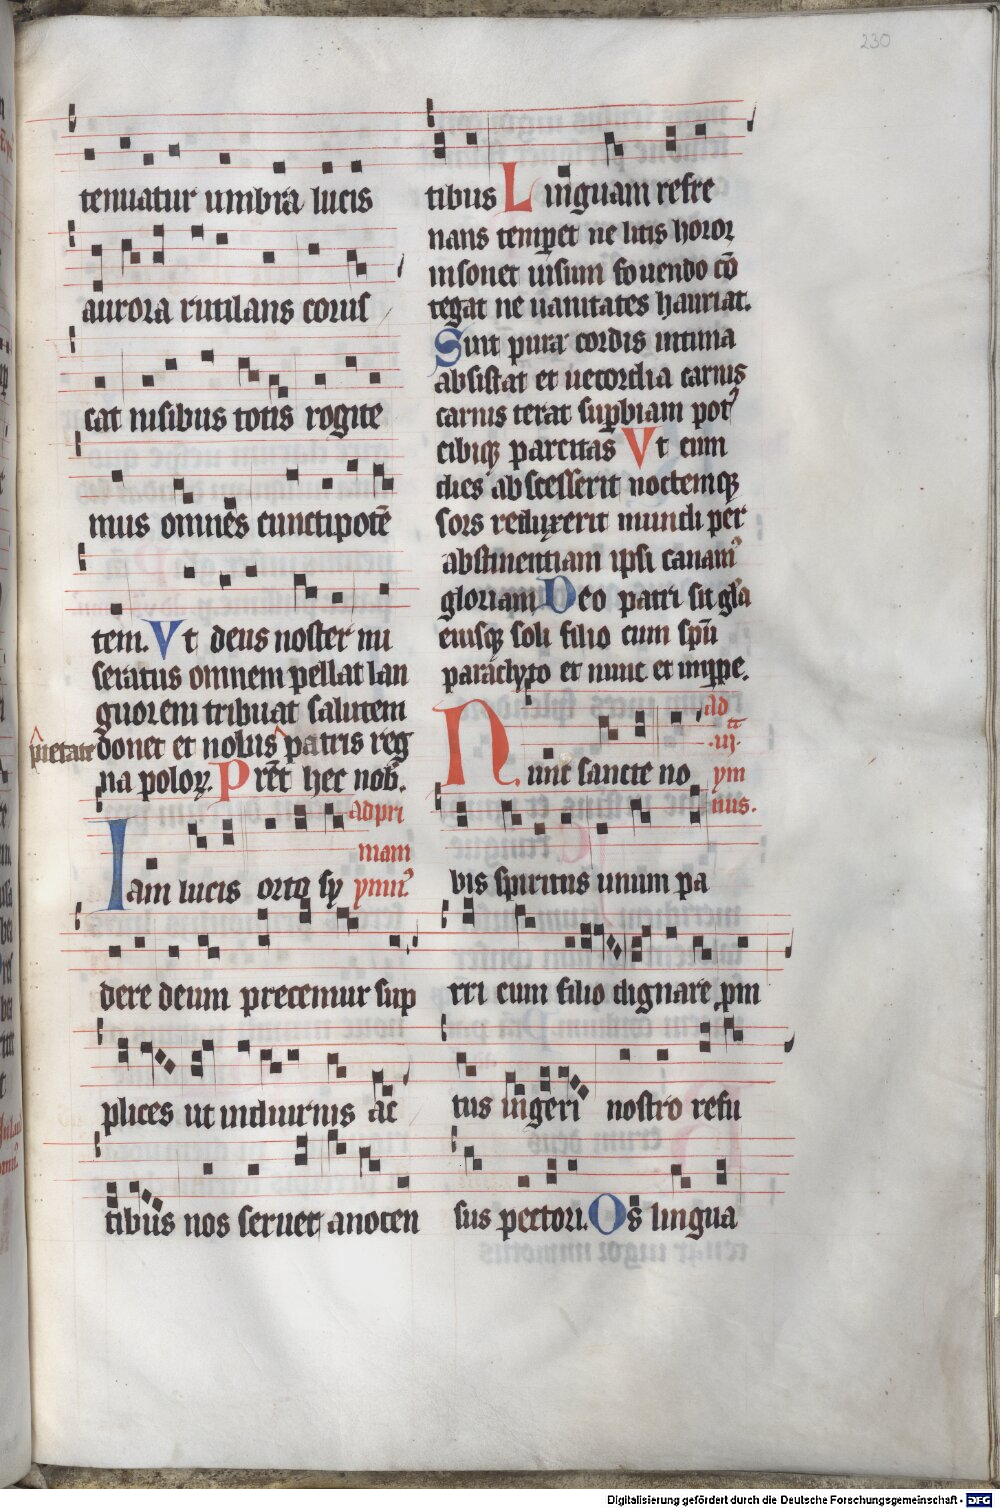 230
tenuatur umbra lucis
aurora rutilans corus
cat nisibus totis rogite
mus omnes cunctipotē
tem. Vt deus noster mi
seratus omnem pellat lan
guorem tribuat salutem
donet et nobis patris reg
pietate
na poloꝝ. Prēt hec nob̄.
ad pri
mam
Iam lucis orto sy ymnꝰ
dere deum precemur sup
plices ut in diurnis ac
tibus nos seruet a nocen
tibus Linguam refre
nans temperet ne litis horor
insonet uisum fouendo cō
tegat ne uanitates hauriat.
Sint pura cordis intima
absistat et uecordia carnis
carnis terat sup̄biam potꝰ
cibiqꝫ parcitas Vt cum
dies abscesserit noctemqꝫ
sors reduxerit mundi per
abstinentiam ipsi canamꝰ
gloriam Deo patri sit gl̄a
eiusqꝫ soli filio cum spū
paraclyto et nunc et imppe.
ad
tī
.iij.
Nunc sancte no ym
nus.
bis spiritus unum pa
tri cum filio dignare pm
tus ingeri nostro refu
sus pectori. Os lingua
Digitalisierung gefördert durch die Deutsche Forschungsgemeinschaft - DFG